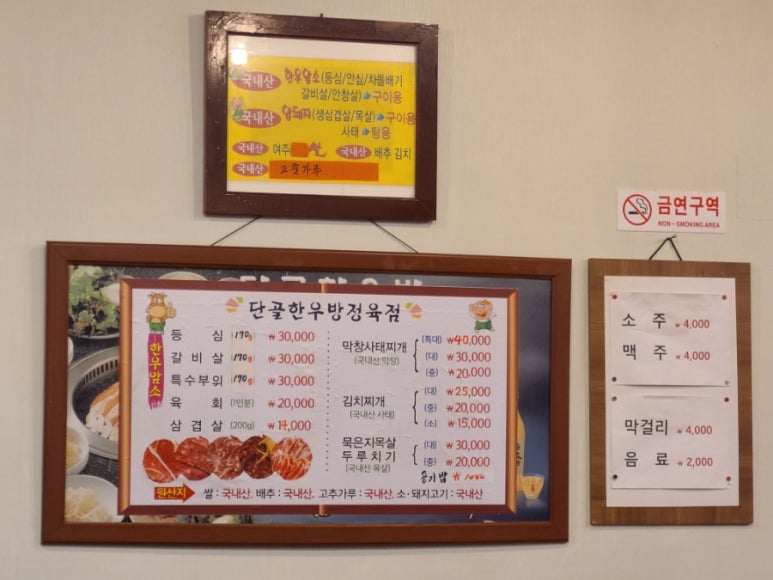 국내산 한우암소(등심/안심/차돌배기
갈비살/안창살) 구이용
국내산 암돼지(생삼겹살/목살) 구이용
사태 탕용
국내산 여주 쌀 국내산 배추 김치
국내산 고춧가루
금연구역
NON - SMOKING AREA
단골한우방정육점
한우암소
등심 170g ₩30,000
갈비살 170g ₩30,000
특수부위 170g ₩30,000
육회 (1인분) ₩20,000
삼겹살 (200g) ₩14,000
막창사태찌개 (특대) ₩40,000
(국내산 막창) (대) ₩30,000
(중) ₩20,000
김치찌개 (대) ₩25,000
(국내산 사태) (중) ₩20,000
(소) ₩15,000
묵은지목살 (대) ₩30,000
두루치기 (중) ₩20,000
(국내산 목살)
공기밥 ₩1000
원산지 쌀 : 국내산, 배추 : 국내산, 고추가루 : 국내산, 소·돼지고기 : 국내산
소주 ₩4,000
맥주 ₩4,000
막걸리 ₩4,000
음료 ₩2,000